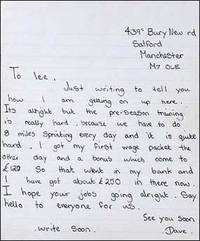 439 Bury New rd
Salford
Manchester
M7 OLE
To lee,
Just writing to tell you
how I am getting on up here.
Its alright but the pre-season training
is really hard, because we have to do
8 miles sprinting every day and it is quite
hard. I got my first wage packet the
other day and a bonus which came to
£120 So that went in my bank and
I have got about £250 in there now.
I hope your jobs going alright. Say
hello to everyone for us.
See you Soon
write Soon. Dave.